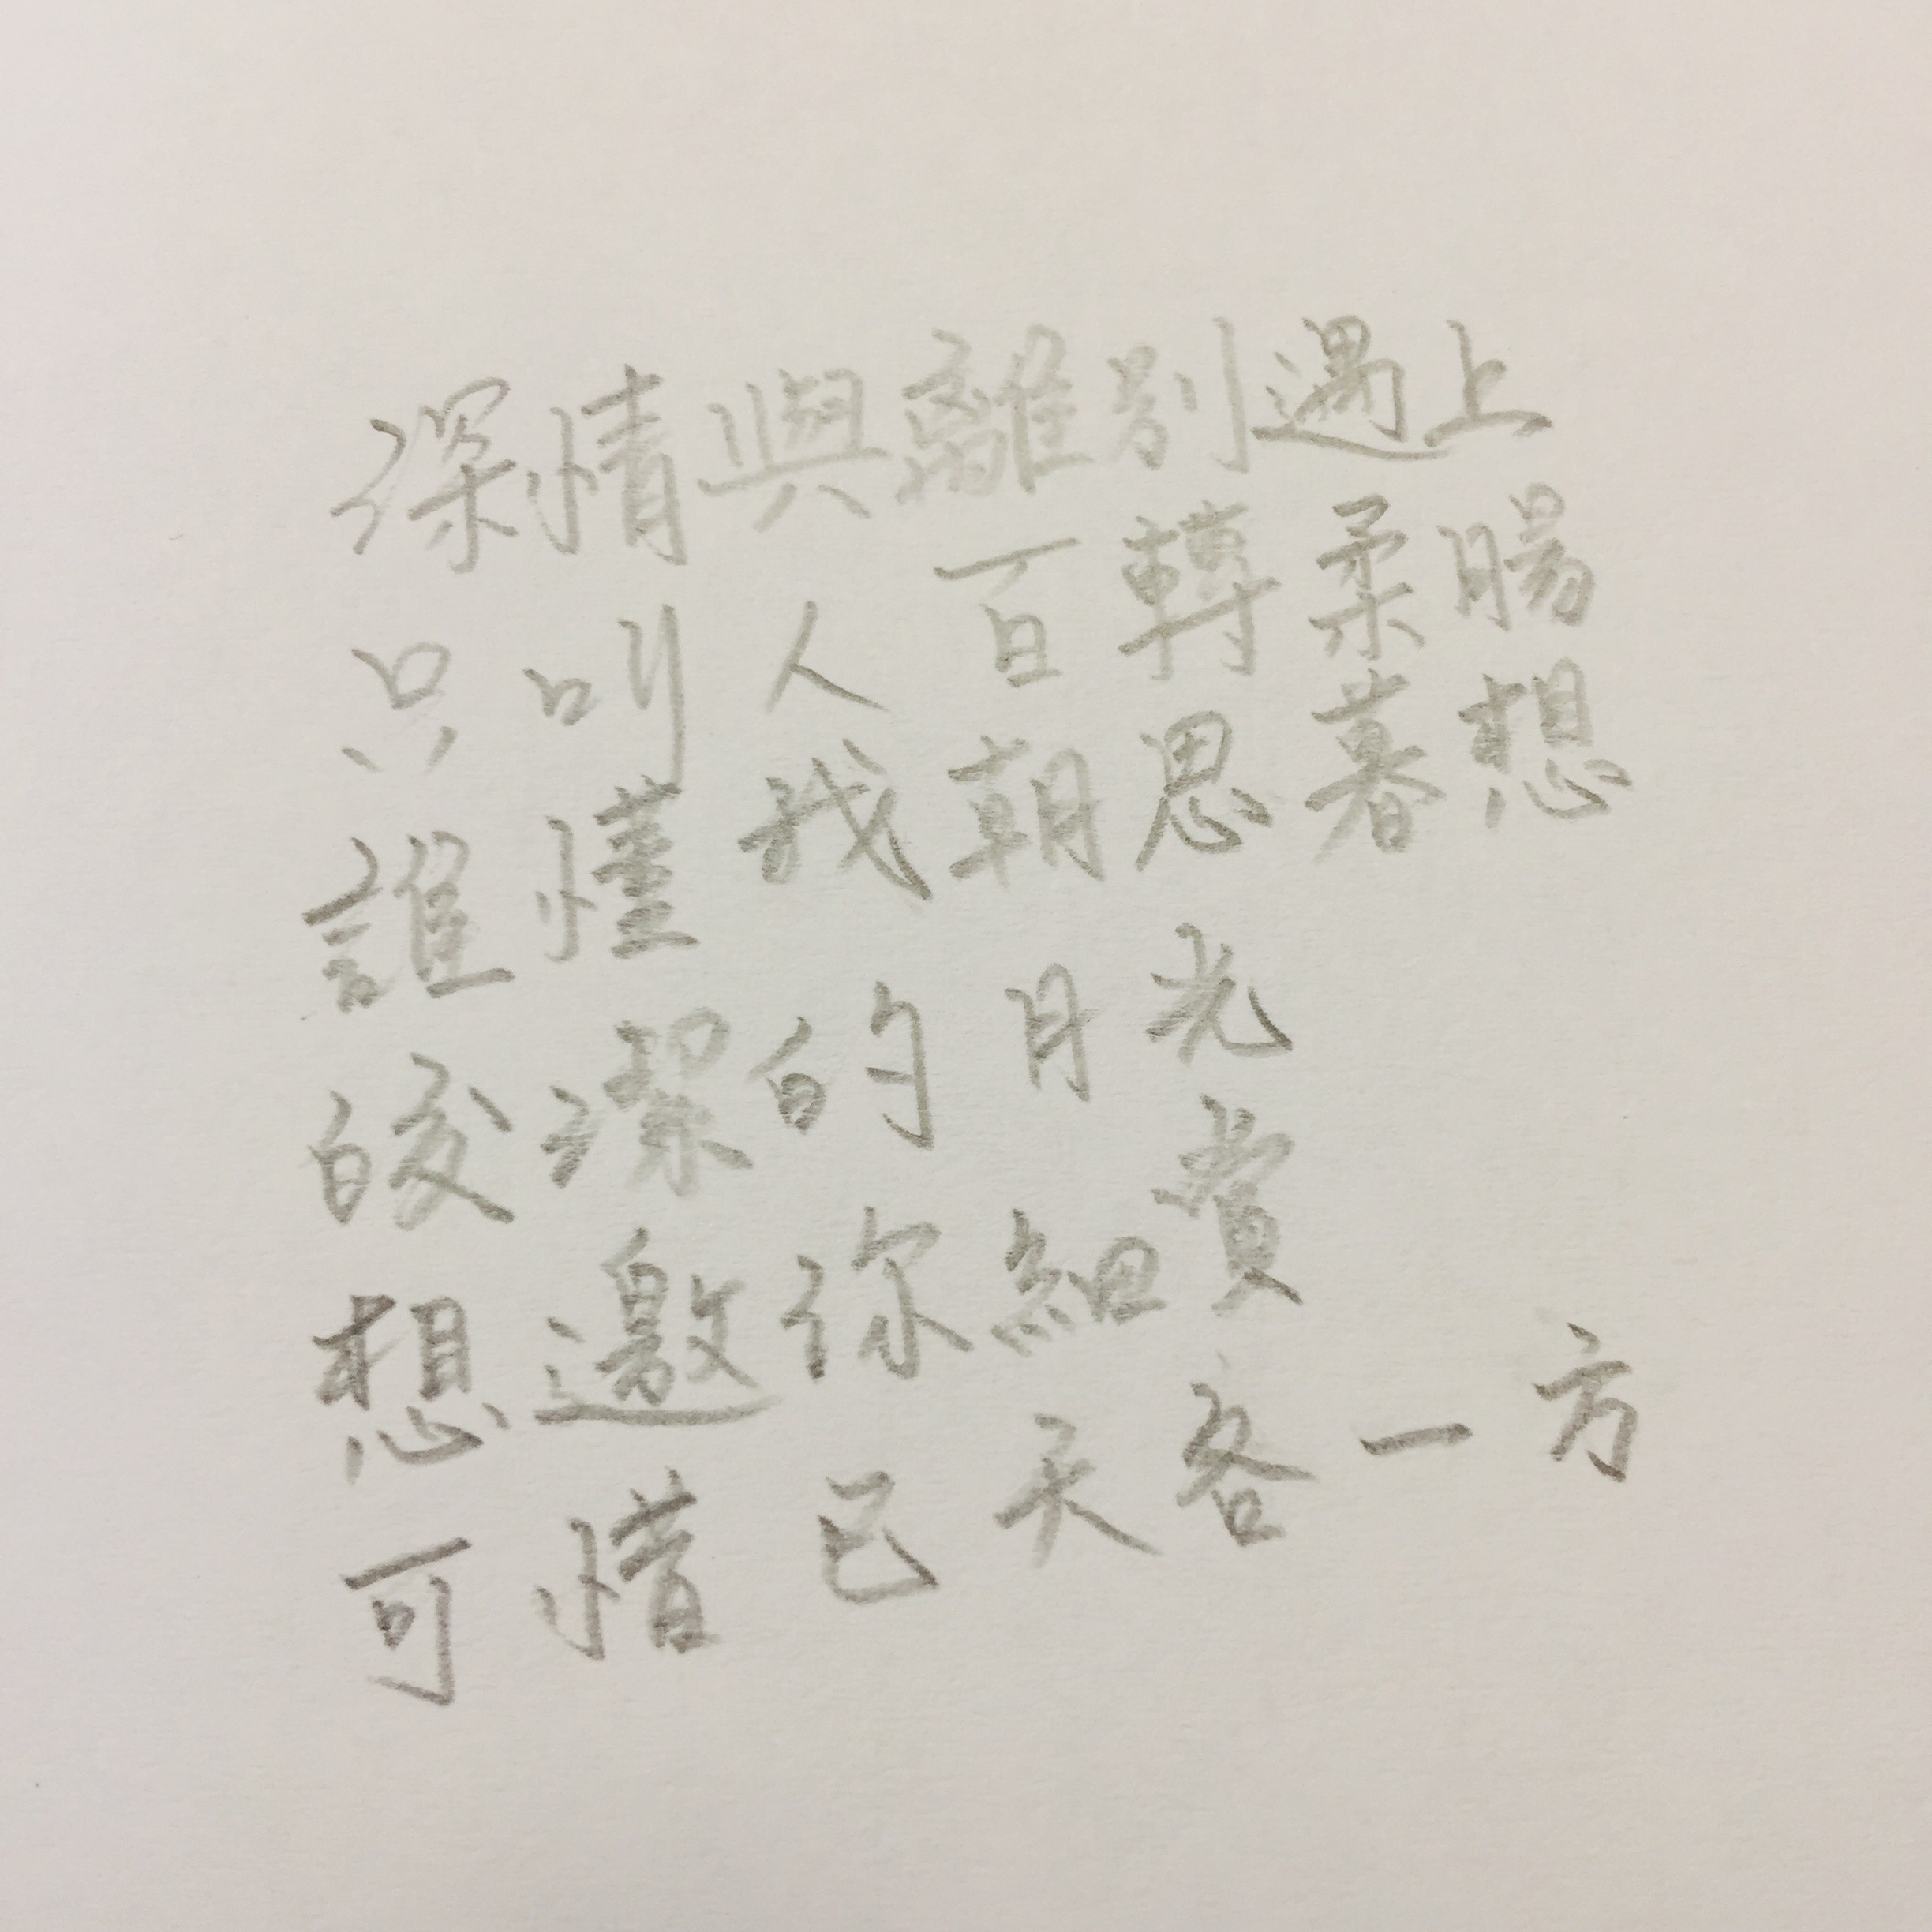 深情與離別遇上
只叫人百轉柔腸
誰懂我朝思暮想
皎潔的月光
想邀你細賞
可惜已天各一方